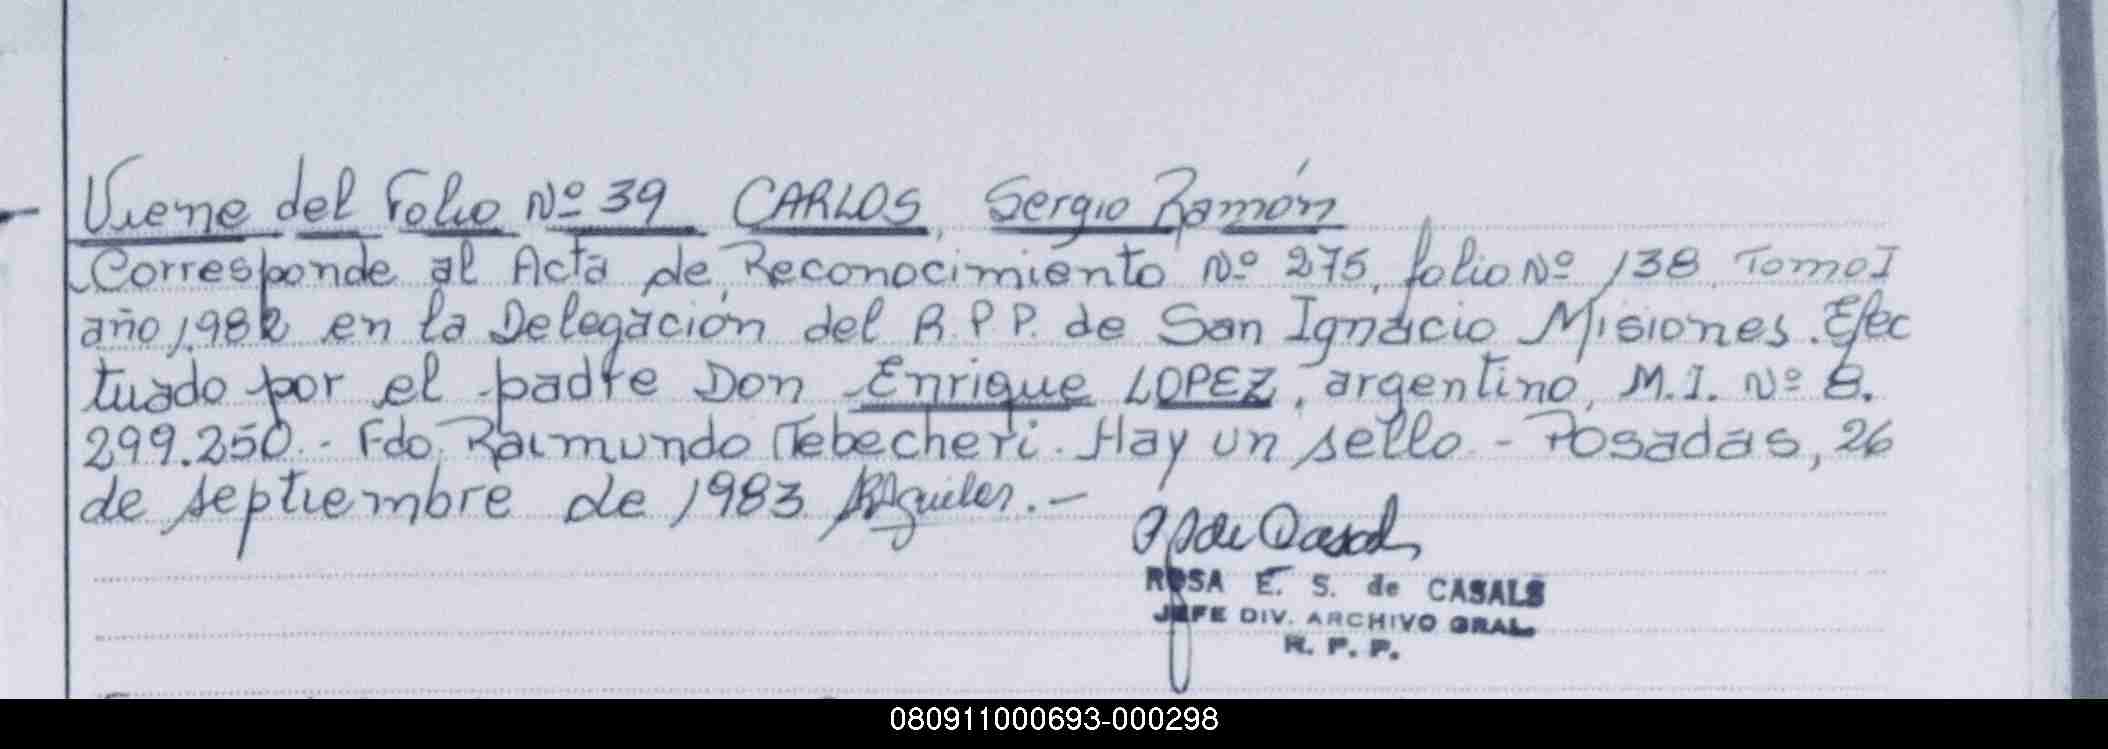 Viene del Folio Nº 39 CARLOS, Sergio Ramón
Corresponde al Acta de Reconocimiento Nº 275, folio Nº 138, Tomo I
año 1.982 en la Delegación del R.P.P. de San Ignacio Misiones. Efec
tuado por el padre Don Enrique LOPEZ, argentino, M.I. Nº 8.
299.250.- Fdo. Raimundo Tebecheri. Hay un sello.- Posadas, 26
de septiembre de 1983 .-
de Casals
ROSA E. S. de CASALS
JEFE DIV. ARCHIVO GRAL.
R. P. P.
080911000693-000298